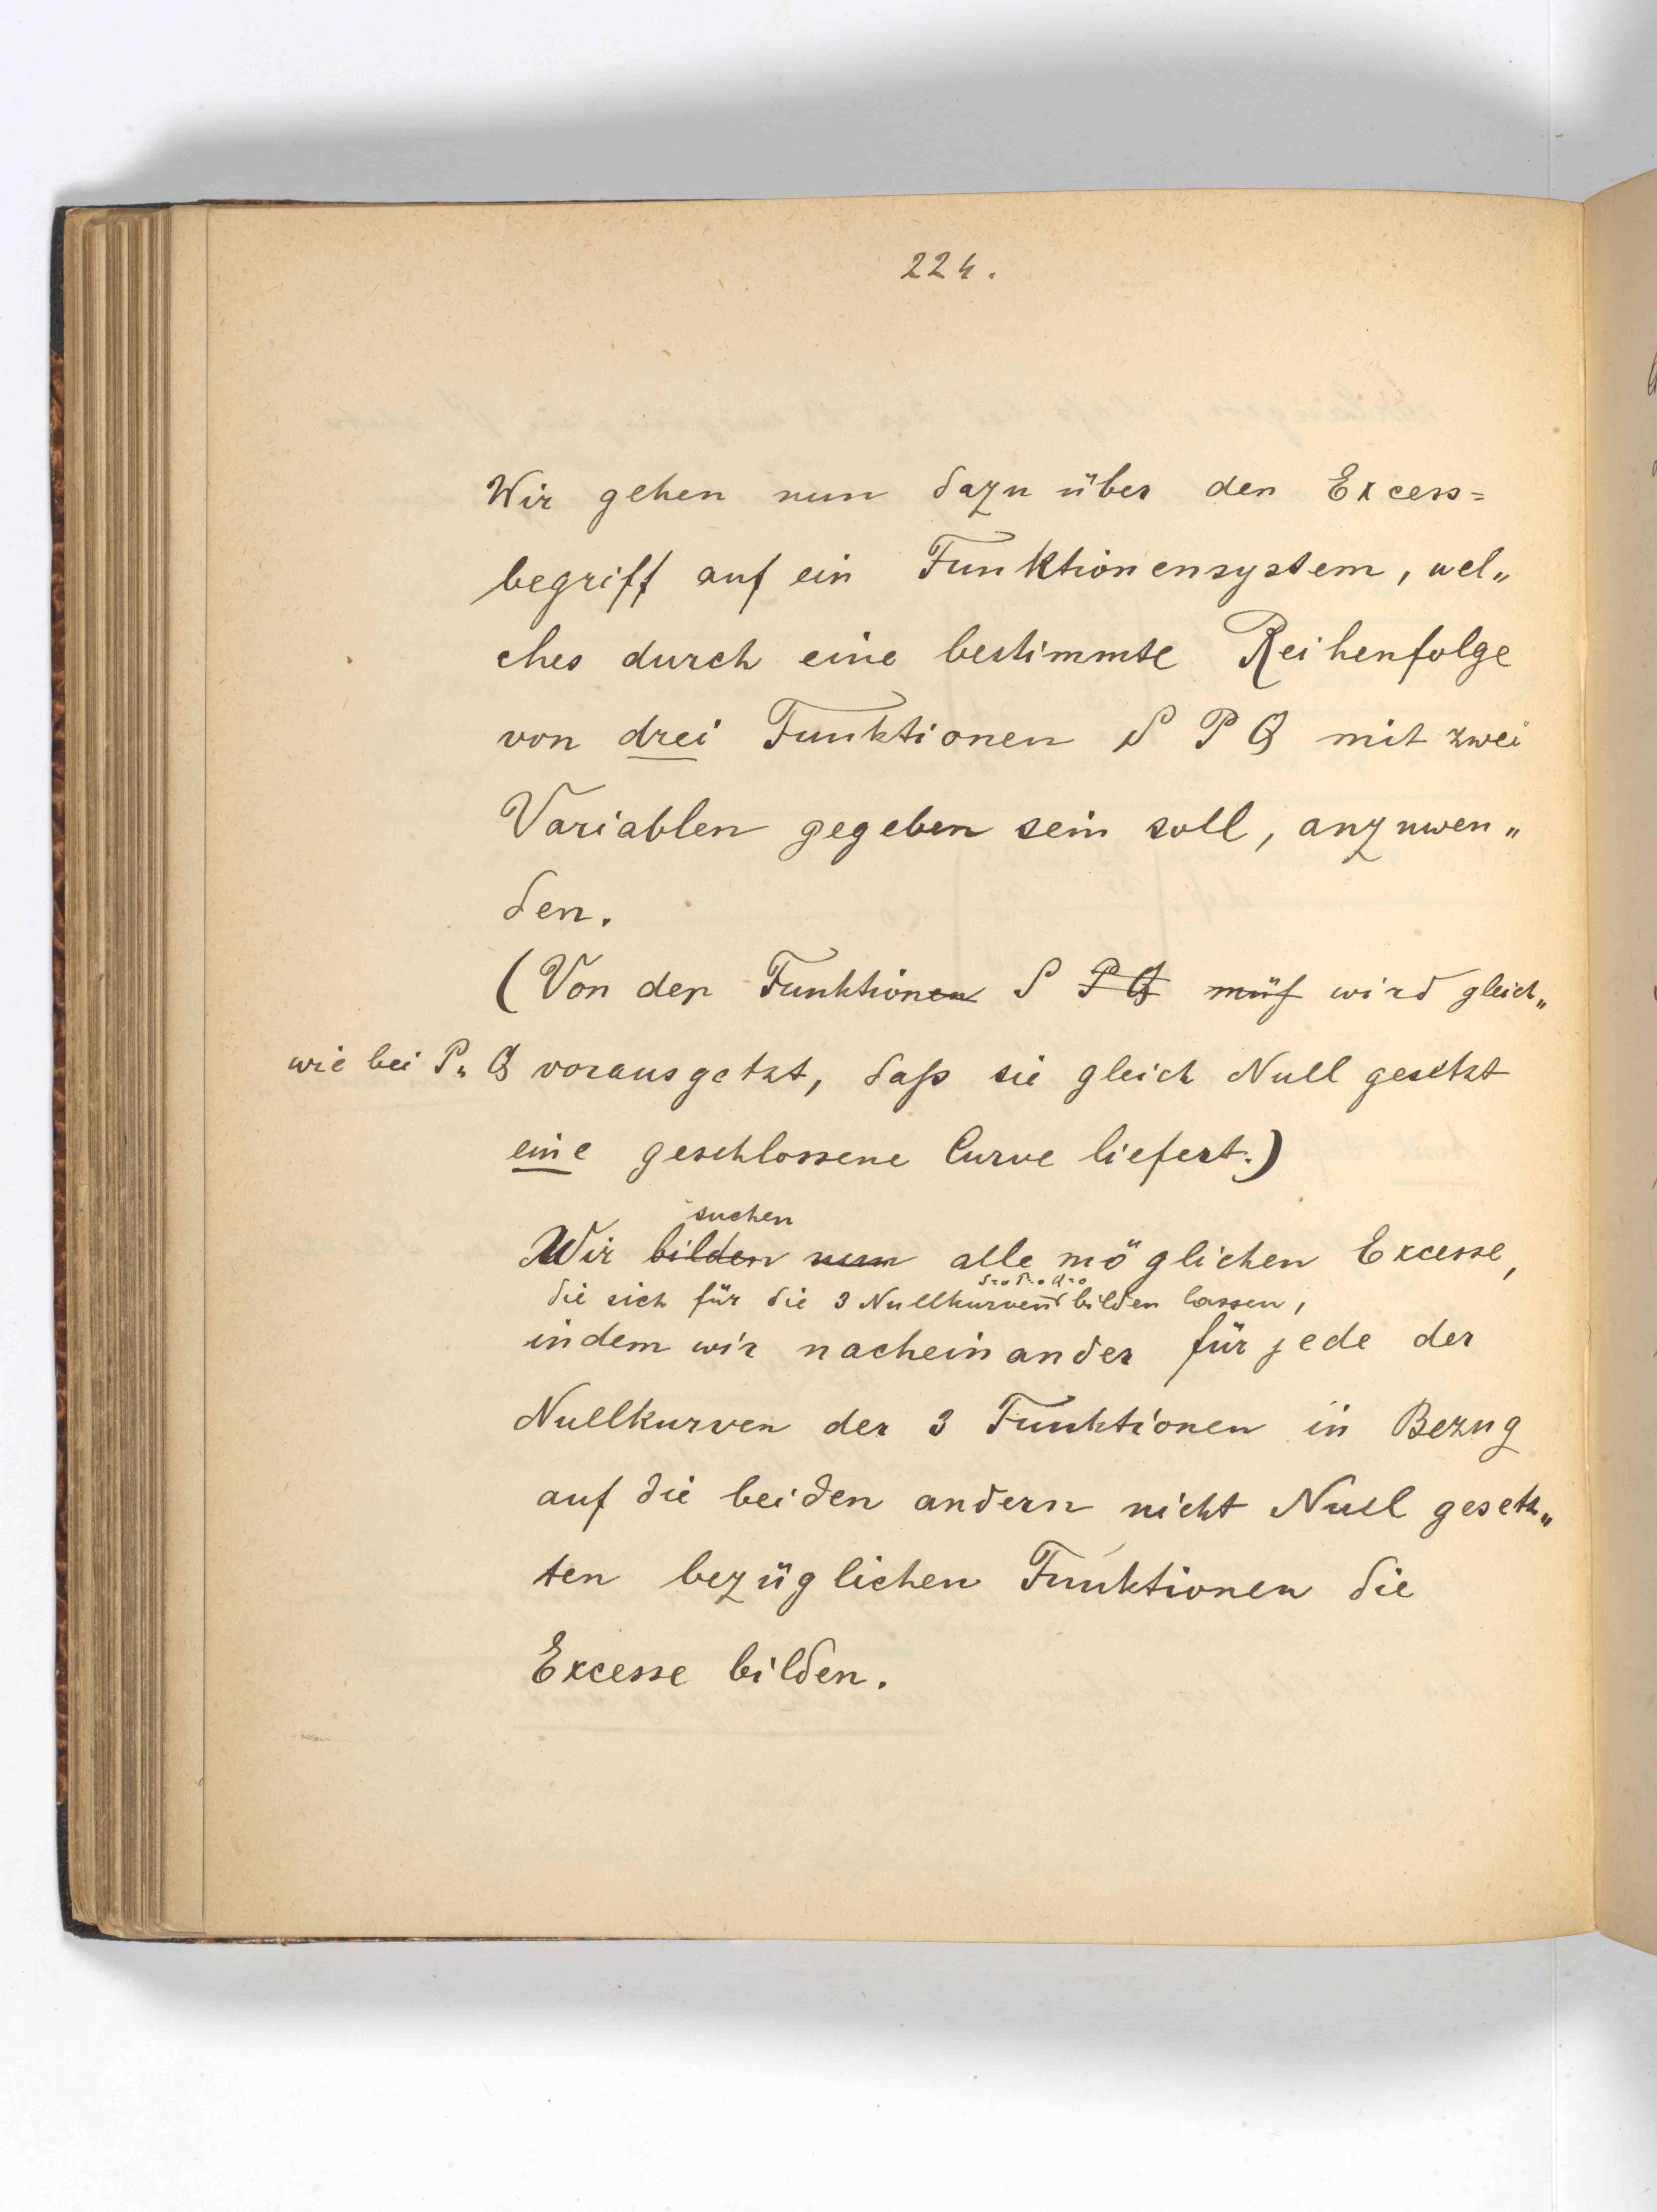 224.
Wir gehen nun dazu über den Excess=
begriff auf ein Funktionensystem, wel„
ches durch eine bestimmte Reihenfolge
von drei Funktionen S P Q mit zwei
Variablen gegeben sein soll, anzuwen„
den.
(Von der Funktionen S P Q muß wird gleich„
wie bei P u Q vorausgetzt, daß sie gleich Null gesetzt
eine geschlossene Curve liefert.)
suchen
Wir bilden nun alle möglichen Excesse,
S=0 P=0 Q=0
die sich für die 3 Nullkurven bilden lassen,
indem wir nacheinander für jede der
Nullkurven der 3 Funktionen in Bezug
auf die beiden andern nicht Null gesetz„
ten bezüglichen Funktionen die
Excesse bilden.